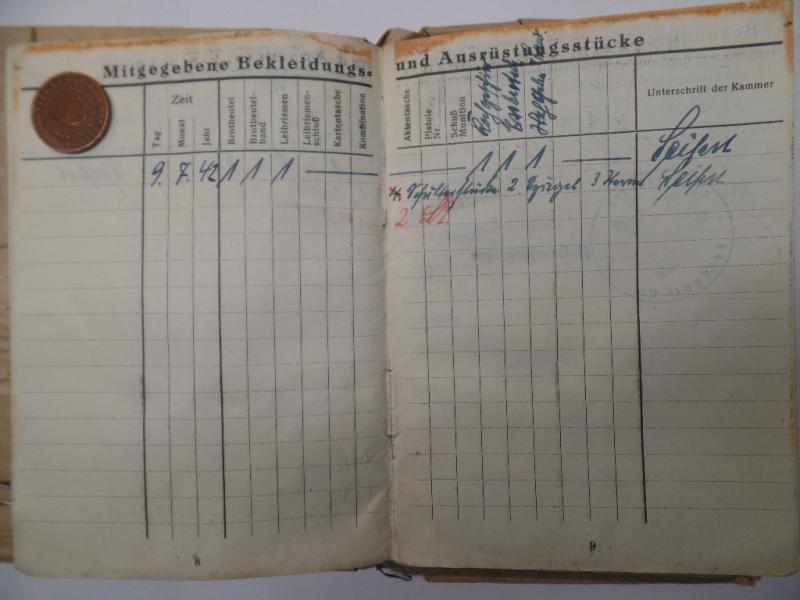 Mitgegebene Bekleidungs- und Ausrüstungsstücke
Zeit
Tag
Monat
Jahr
Brotbeutel
Brotbeutel-
band
Leibriemen
Leibriemen-
schloß
Kartentasche
Kombination
Aktentasche
Pistole
Nr.
Schuß
Munition
Kochgeschirr
Unterschrift der Kammer
9. 7. 42 1 1 1 — 1 1 1 — Seifert
2 Spiegel 3 Seifert
2
8
9